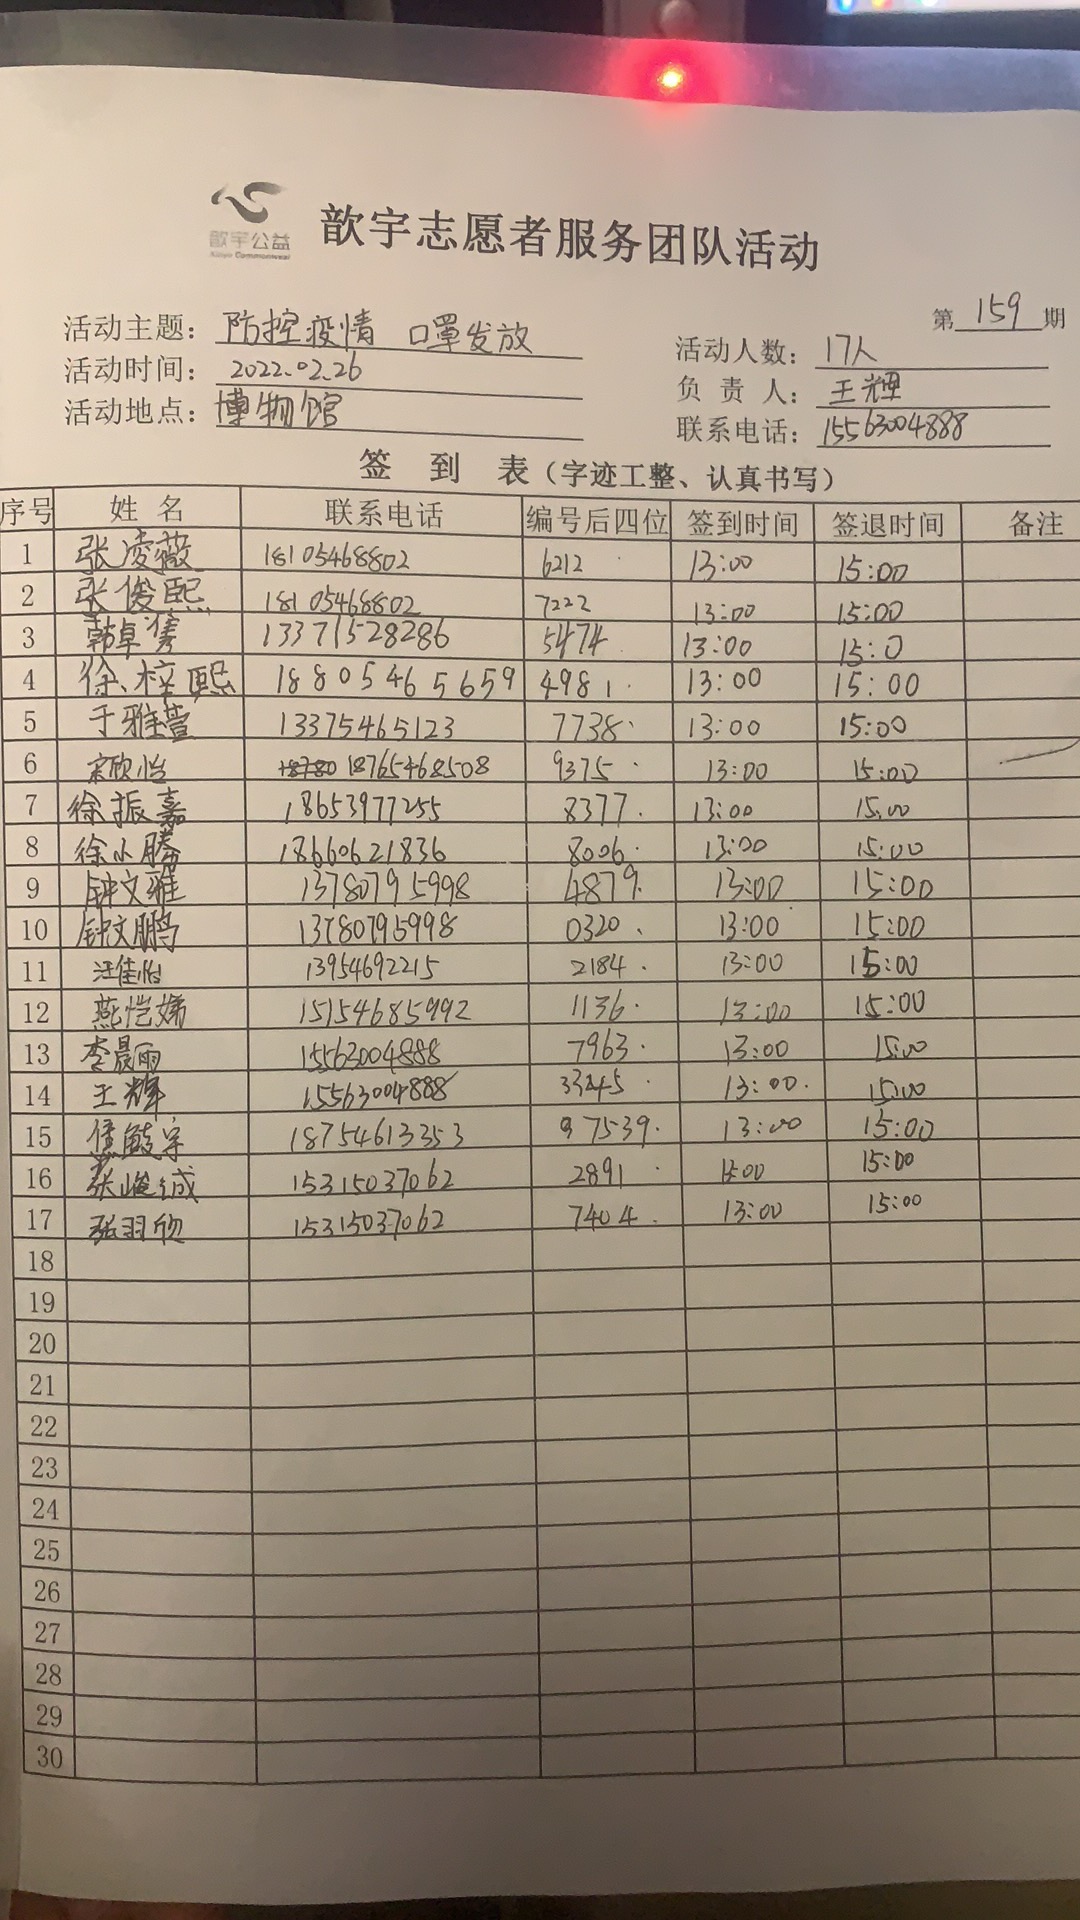 歆宇公益
歆宇志愿者服务团队活动
第 159 期
活动主题：防控疫情 口罩发放
活动人数：17人
活动时间：2022.02.26
负 责 人：王辉
活动地点：博物馆
联系电话：15563004888
签 到 表（字迹工整、认真书写）
序号 姓 名 联系电话 编号后四位 签到时间 签退时间 备注
1 张凌薇 18105468802 6212 13:00 15:00
2 张俊熙 18105468802 7222 13:00 15:00
3 韩卓隽 13371528286 5474 13:00 15:0
4 徐梓熙 18805465659 4981 13:00 15:00
5 于雅萱 13375465123 7738 13:00 15:00
6 宋欣怡 18765468508 9375 13:00 15:00
7 徐振嘉 18653977255 8377 13:00 15:00
8 徐小腾 18660621836 8006 13:00 15:00
9 钟文雅 13780795998 4879 13:00 15:00
10 钟文鹏 13780795998 0320 13:00 15:00
11 汪佳怡 13954692215 2184 13:00 15:00
12 燕恺娣 15154685992 1136 13:00 15:00
13 李晨雨 15563004888 7963 13:00 15:00
14 王辉 15563004888 13:00 15:00
15 宇 18754613353 7539 13:00 15:00
16 张峻诚 15315037062 2891 15:00
17 张羽欣 15315037062 7404 13:00 15:00
18
19
20
21
22
23
24
25
26
27
28
29
30